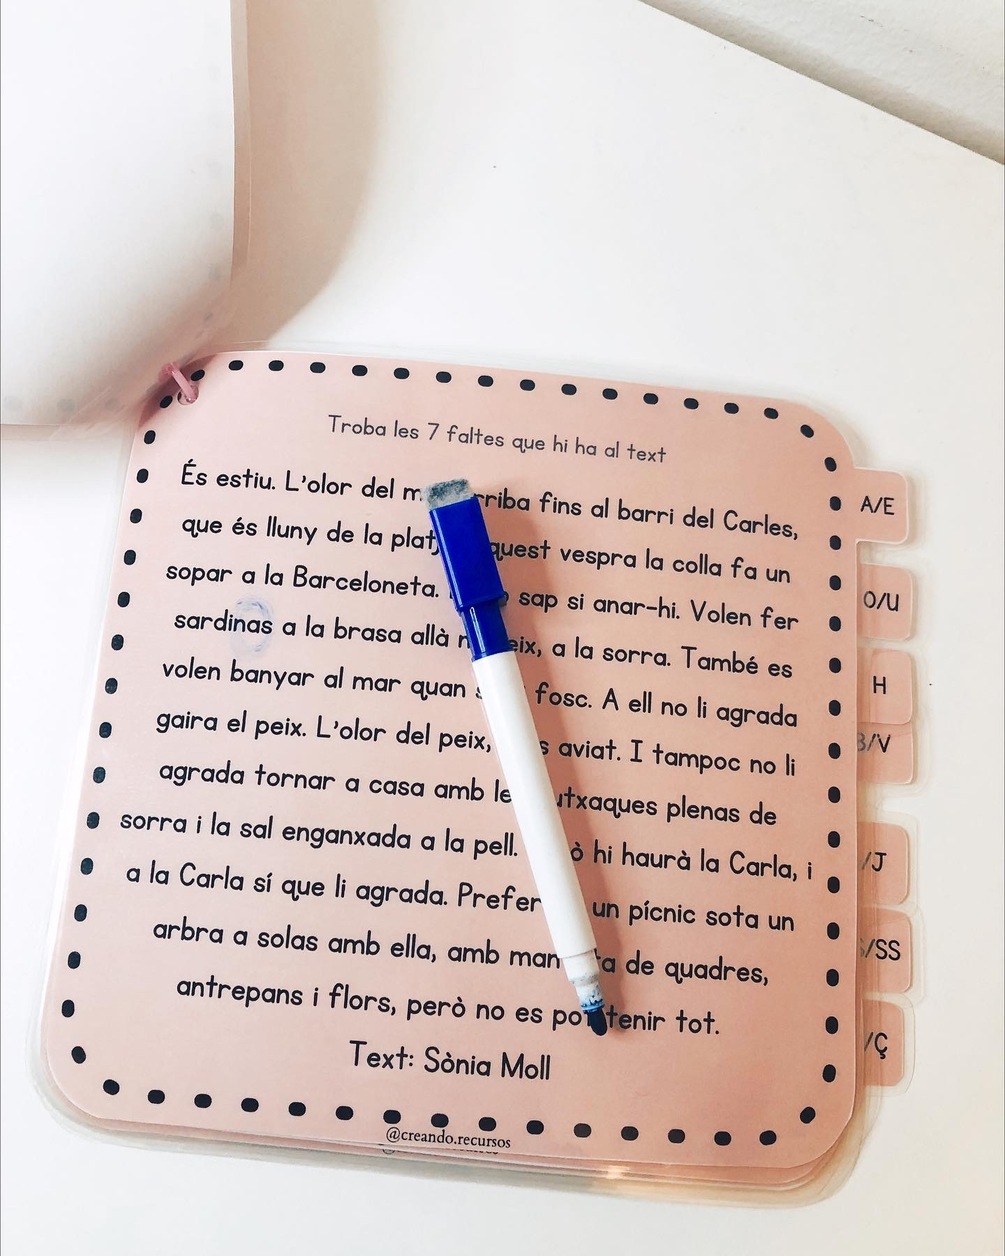 Troba les 7 faltes que hi ha al text
És estiu. L'olor del fins al barri del Carles,
que és lluny de la vespra la colla fa un
sopar a la Barceloneta. sap si anar-hi. Volen fer
sardinas a la brasa allà a la sorra. També es
volen banyar al mar quan fosc. A ell no li agrada
gaira el peix. L'olor del peix, aviat. I tampoc no li
agrada tornar a casa amb plenas de
sorra i la sal enganxada a la pell. hi haurà la Carla, i
a la Carla sí que li agrada. un pícnic sota un
arbra a solas amb ella, amb de quadres,
antrepans i flors, però no es pot tenir tot.
Text: Sònia Moll
@creando.recursos
A/E
O/U
H
B/V
/J
/SS
/Ç